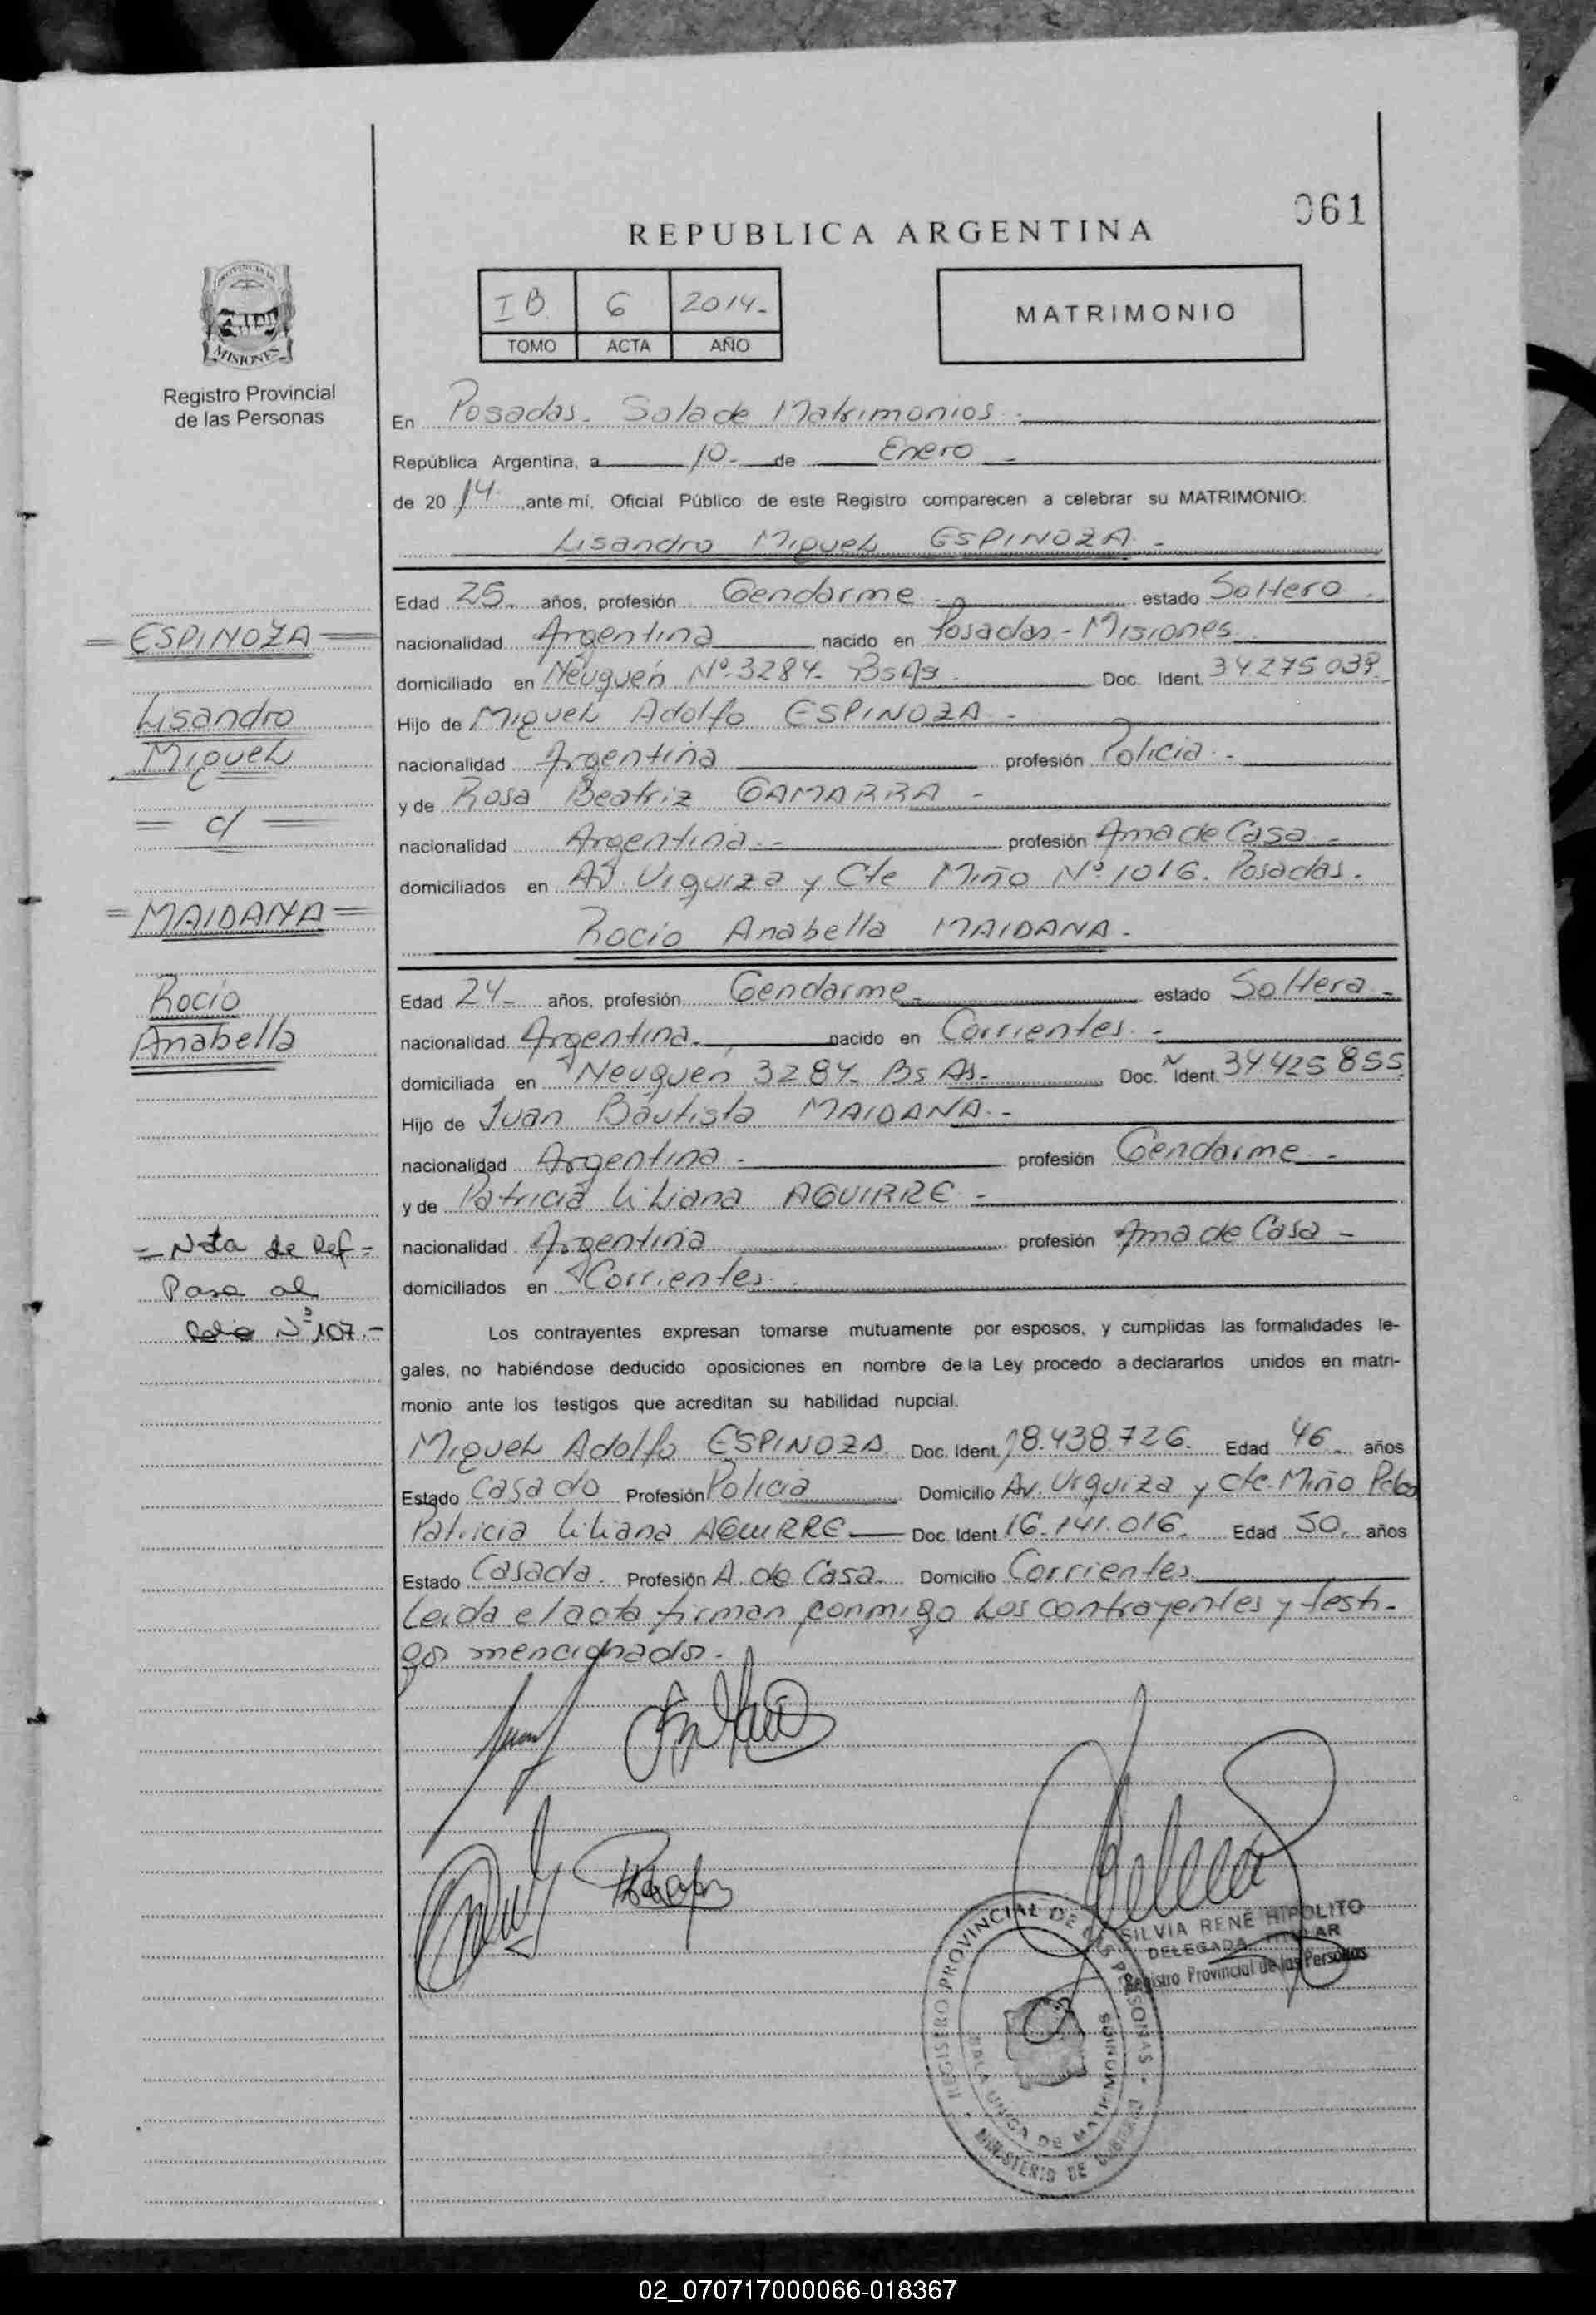 061
REPUBLICA ARGENTINA
IB. 6 2014.-
TOMO ACTA AÑO
MATRIMONIO
PROVINCIA DE
MISIONES
Registro Provincial
de las Personas
En Posadas. Sala de Matrimonios.
República Argentina, a 10.- de Enero -
de 2014. ,ante mí, Oficial Público de este Registro comparecen a celebrar su MATRIMONIO:
Lisandro Miguel ESPINOZA.-
Edad 25.- años, profesión Gendarme.- estado Soltero.
nacionalidad Argentina nacido en Posadas - Misiones
domiciliado en Neuquén Nº 3284- BsAs. Doc. Ident. 34.275.039.
Hijo de Miguel Adolfo ESPINOZA.-
nacionalidad Argentina profesión Policia.-
y de Rosa Beatriz GAMARRA -
nacionalidad Argentina.- profesión Ama de Casa.-
domiciliados en Av. Urquiza y Cte Miño Nº 1016. Posadas.
Rocío Anabella MAIDANA.
Edad 24- años, profesión Gendarme- estado Soltera -
nacionalidad Argentina. nacido en Corrientes.-
domiciliada en Neuquén 3284- Bs As.- Doc. Ident. 34.425.855
Hijo de Juan Bautista MAIDANA.-
nacionalidad Argentina.- profesión Gendarme -
y de Patricia Liliana AGUIRRE -
nacionalidad Argentina profesión Ama de Casa -
domiciliados en Corrientes.-
Los contrayentes expresan tomarse mutuamente por esposos, y cumplidas las formalidades le-
gales, no habiéndose deducido oposiciones en nombre de la Ley procedo a declararlos unidos en matri-
monio ante los testigos que acreditan su habilidad nupcial.
Miguel Adolfo ESPINOZA. Doc. Ident. 18.438.726. Edad 46 años
Estado Casado Profesión Policia Domicilio Av. Urquiza y Cte. Miño Pdas
Patricia Liliana AGUIRRE Doc. Ident. 16.141.016. Edad 50. años
Estado Casada. Profesión A. de Casa. Domicilio Corrientes
Leida el acta firman conmigo los contrayentes y testi-
gos mencionados.-
= ESPINOZA =
Lisandro
Miguel
= c/ =
= MAIDANA =
Rocío
Anabella
= Nota de Ref =
Pasa al
folio Nº 107.-
SILVIA RENE HIPOLITO
DELEGADA TITULAR
Registro Provincial de las Personas
REGISTRO PROVINCIAL DE LAS PERSONAS
SALA UNICA DE MATRIMONIOS
MINISTERIO DE GOBIERNO
02_070717000066-018367